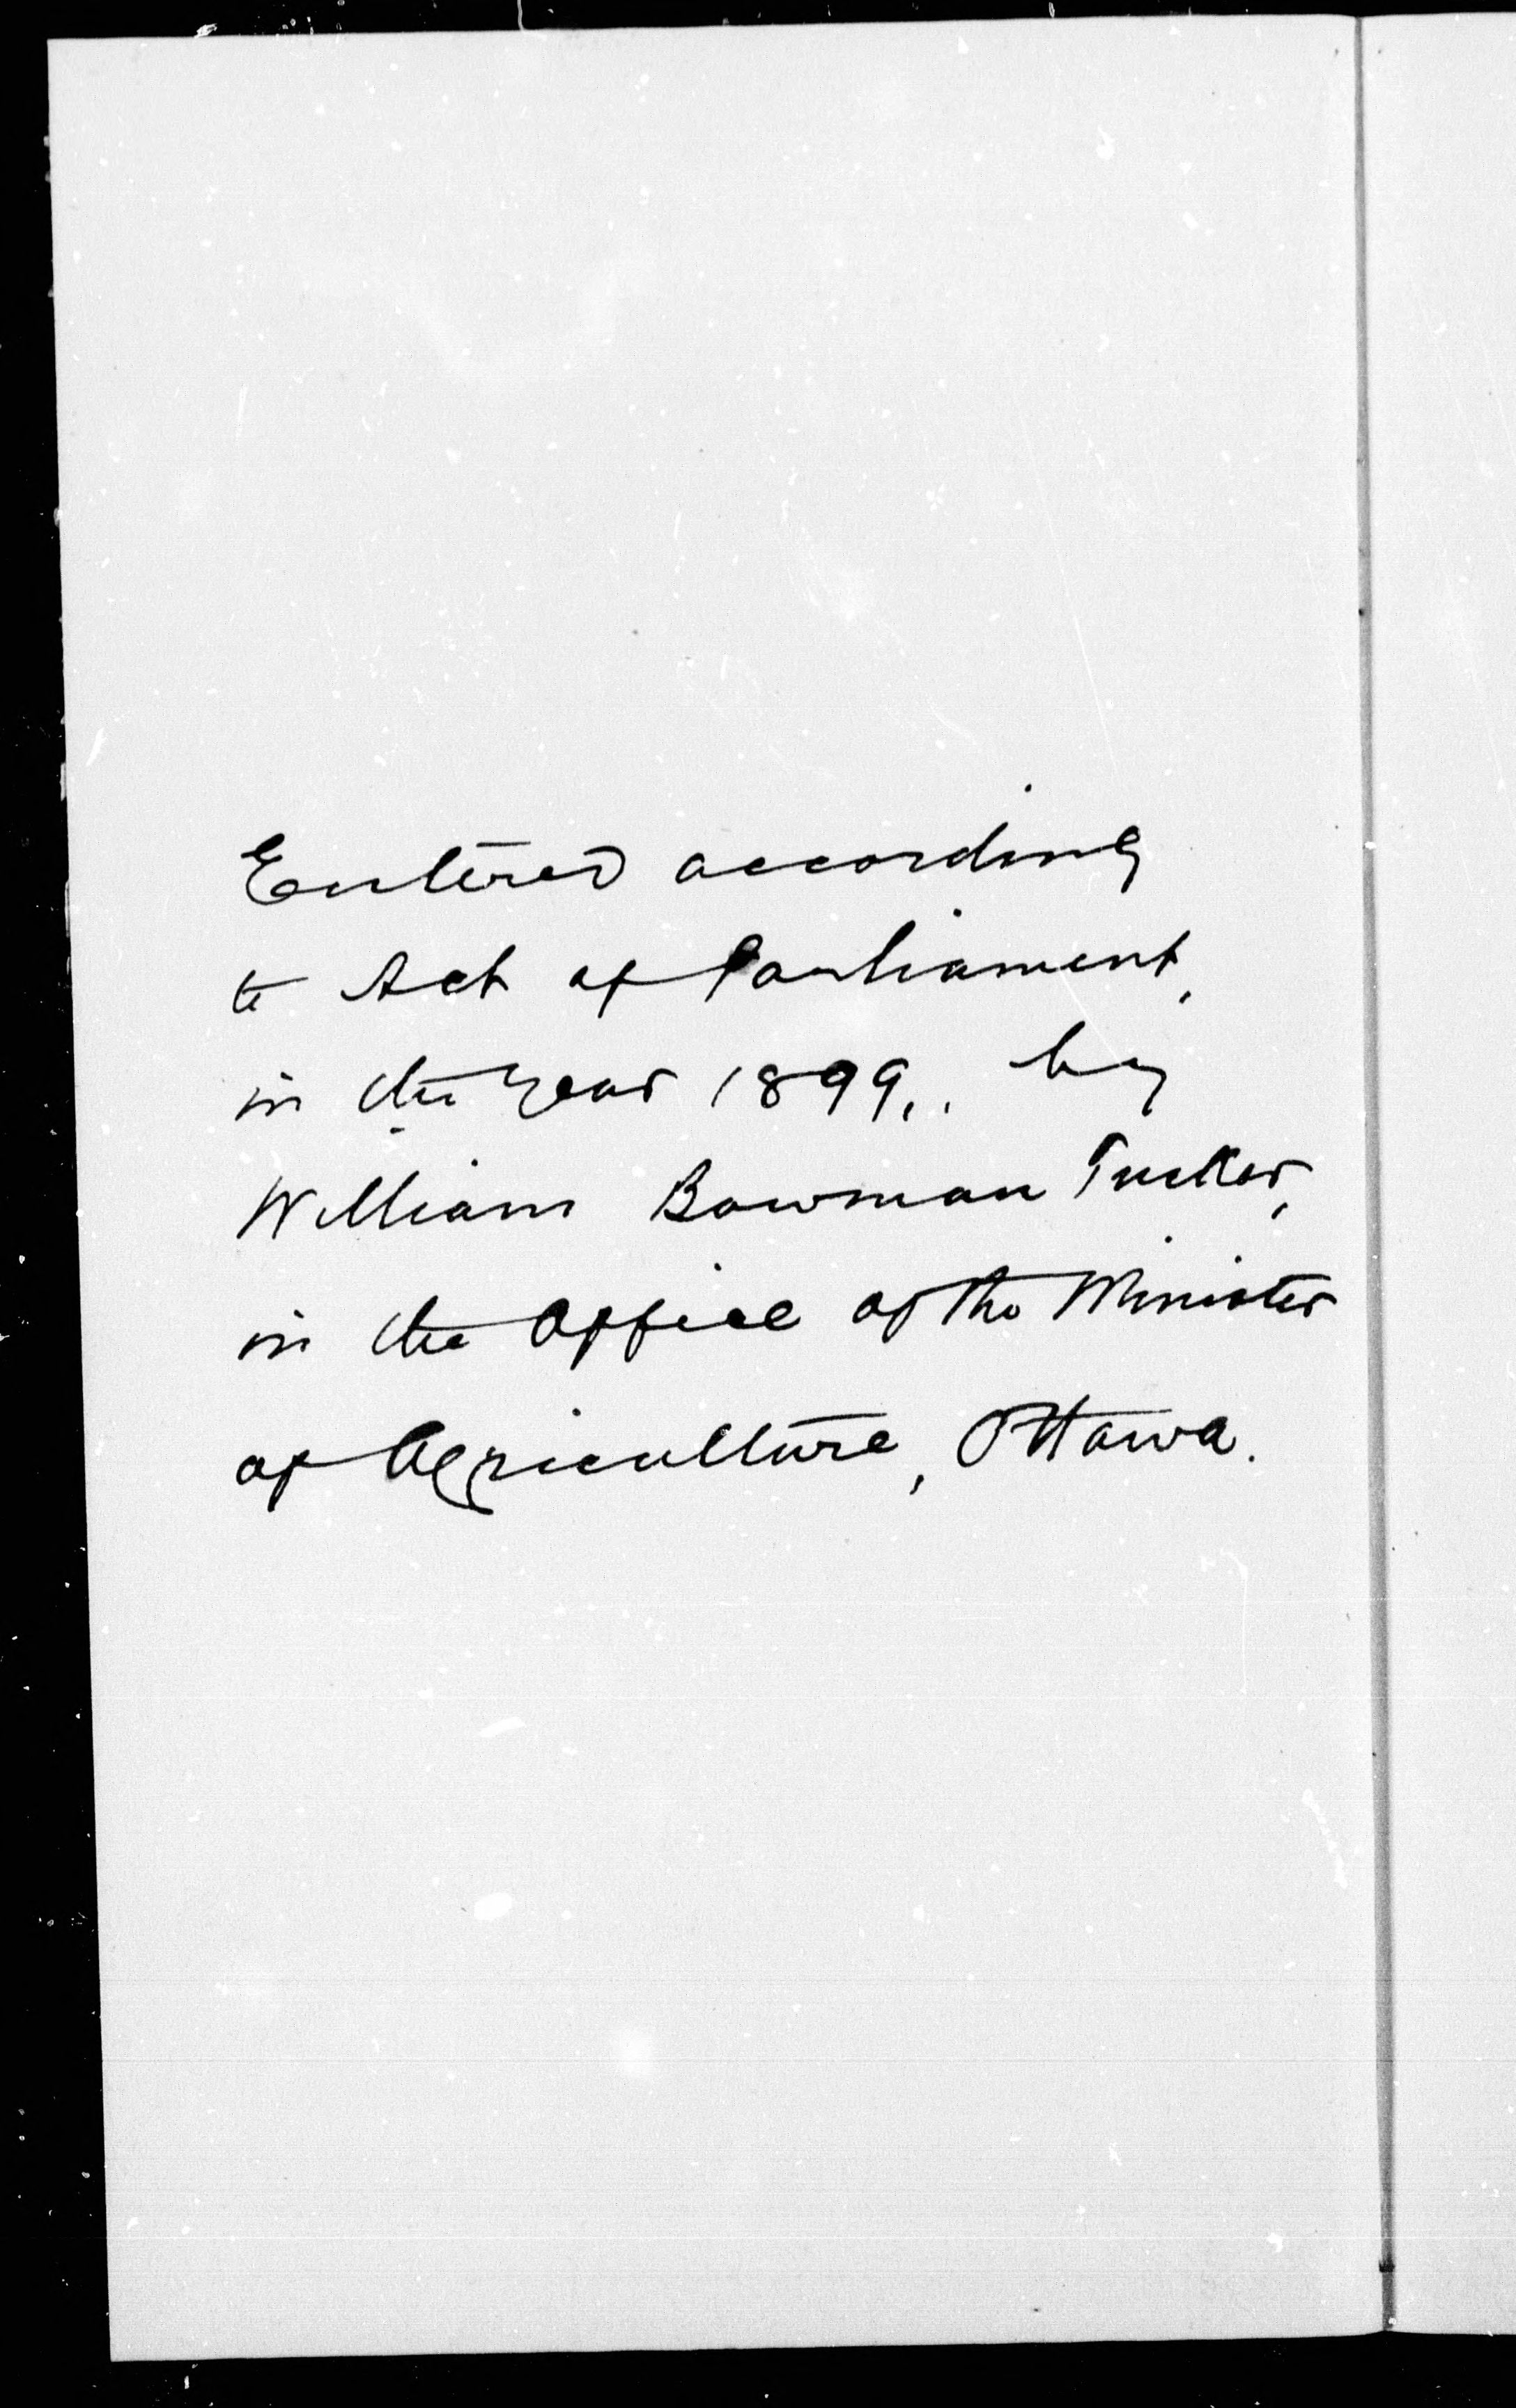 Entered according
to Act of Parliament,
in the year 1899,. by
William Bowman Tucker,
in the Office of the Minister
of Agriculture, Ottawa.